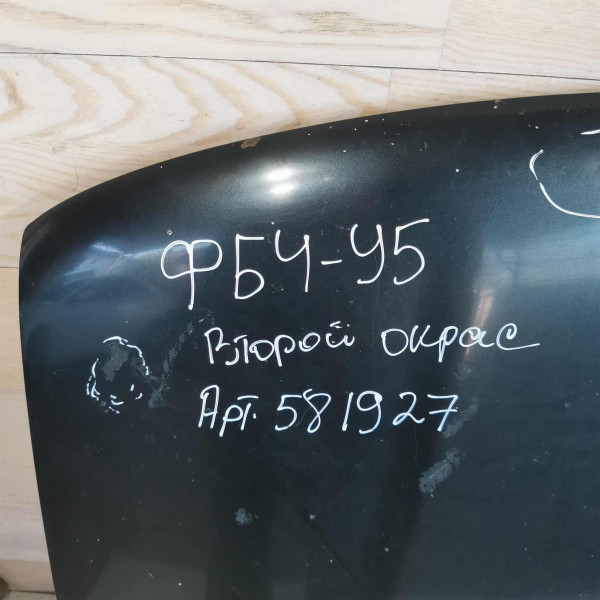 ФБЧ-У5
Второй окрас
Арт. 581927